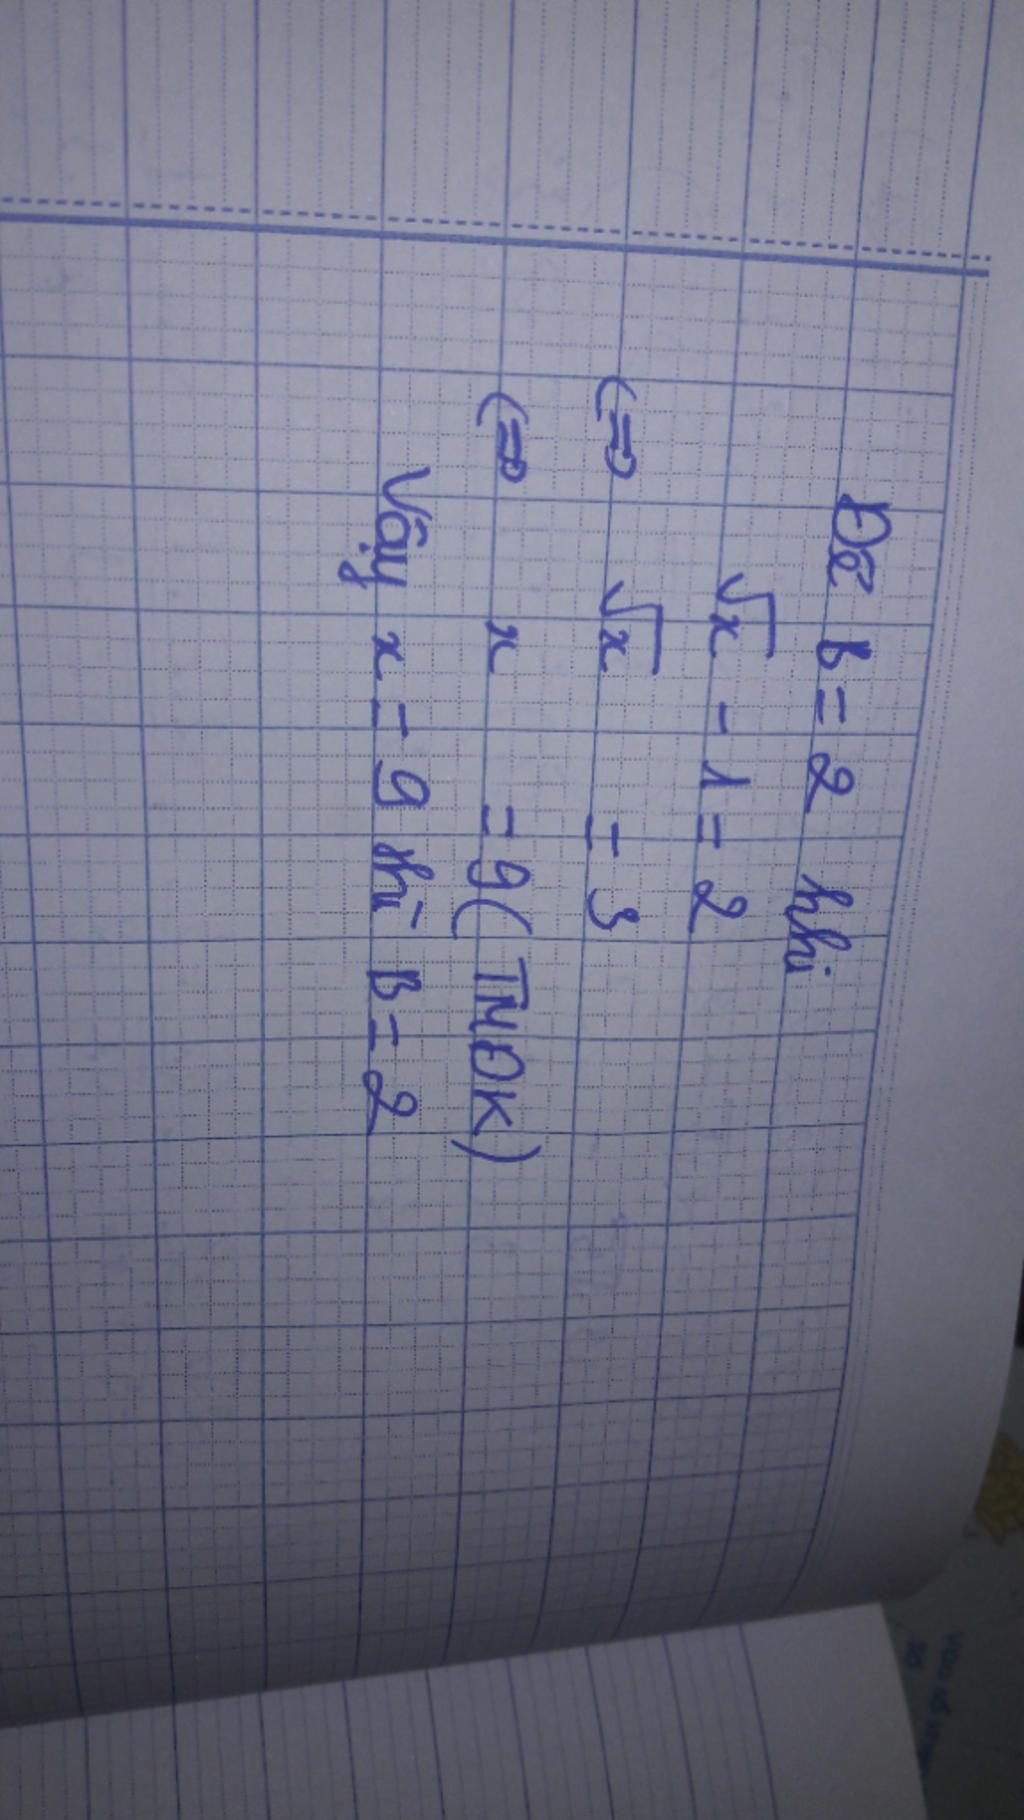 Để B = 2 khi
√x - 1 = 2
(=) √x = 3
(=) x = 9 (TMĐK)
Vậy x = 9 thì B = 2